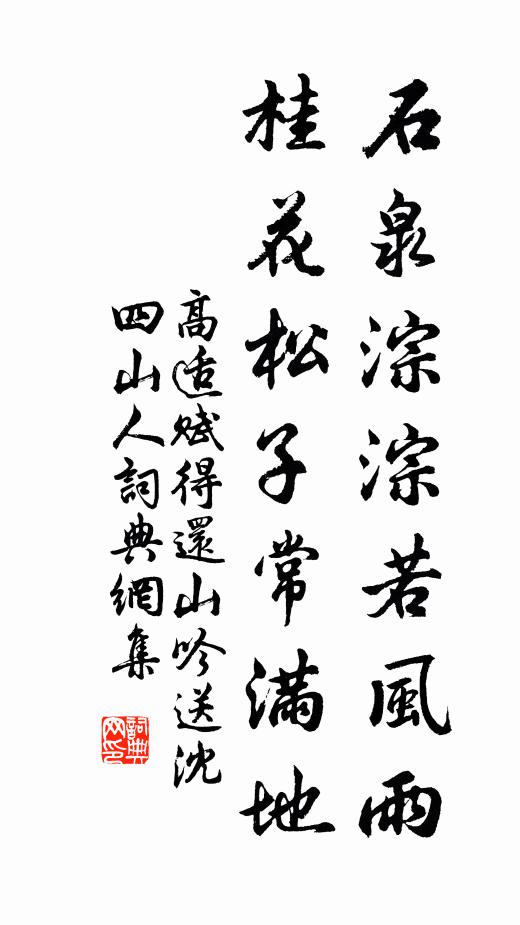 石泉淙淙若風雨
桂花松子常滿地
高适賦得還山吟送沈
四山人詞典網集
詞典网印